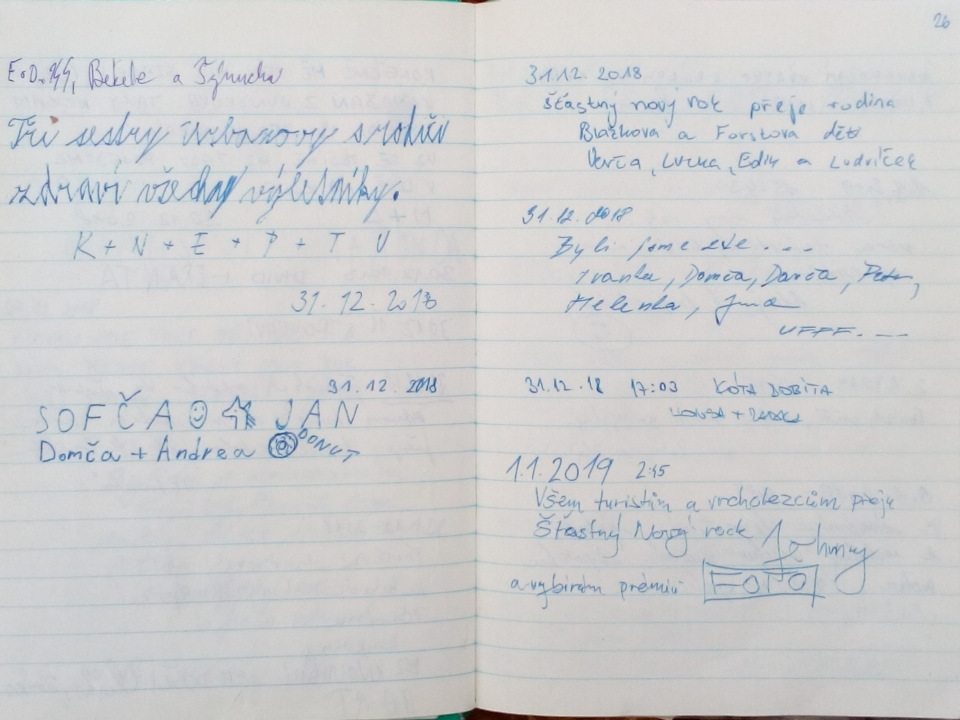 Bekele a
Tři sestry Urbanovy s rodiči
zdraví všechny výletníky.
K + N + E + P + T V
31.12.2018
31.12.2018
SOFČA JAN
Domča + Andrea DONUT
26
31.12.2018
Šťastný nový rok přeje rodina
Blažkova a Forstova děti
Verča, Lucka, Edík a Ludvíček
31.12.2018
Byli jsme zde ...
Ivanka, Domča, Darča, Petr,
Helenka, Jana
UFFF. ...
31.12.18 17:03 KÓTA DOBITA
HONZA +
1.1.2019 2:45
Všem turistům a vrcholezcům přeju
Šťastný Nový rock
a vybírám prémii FOTO